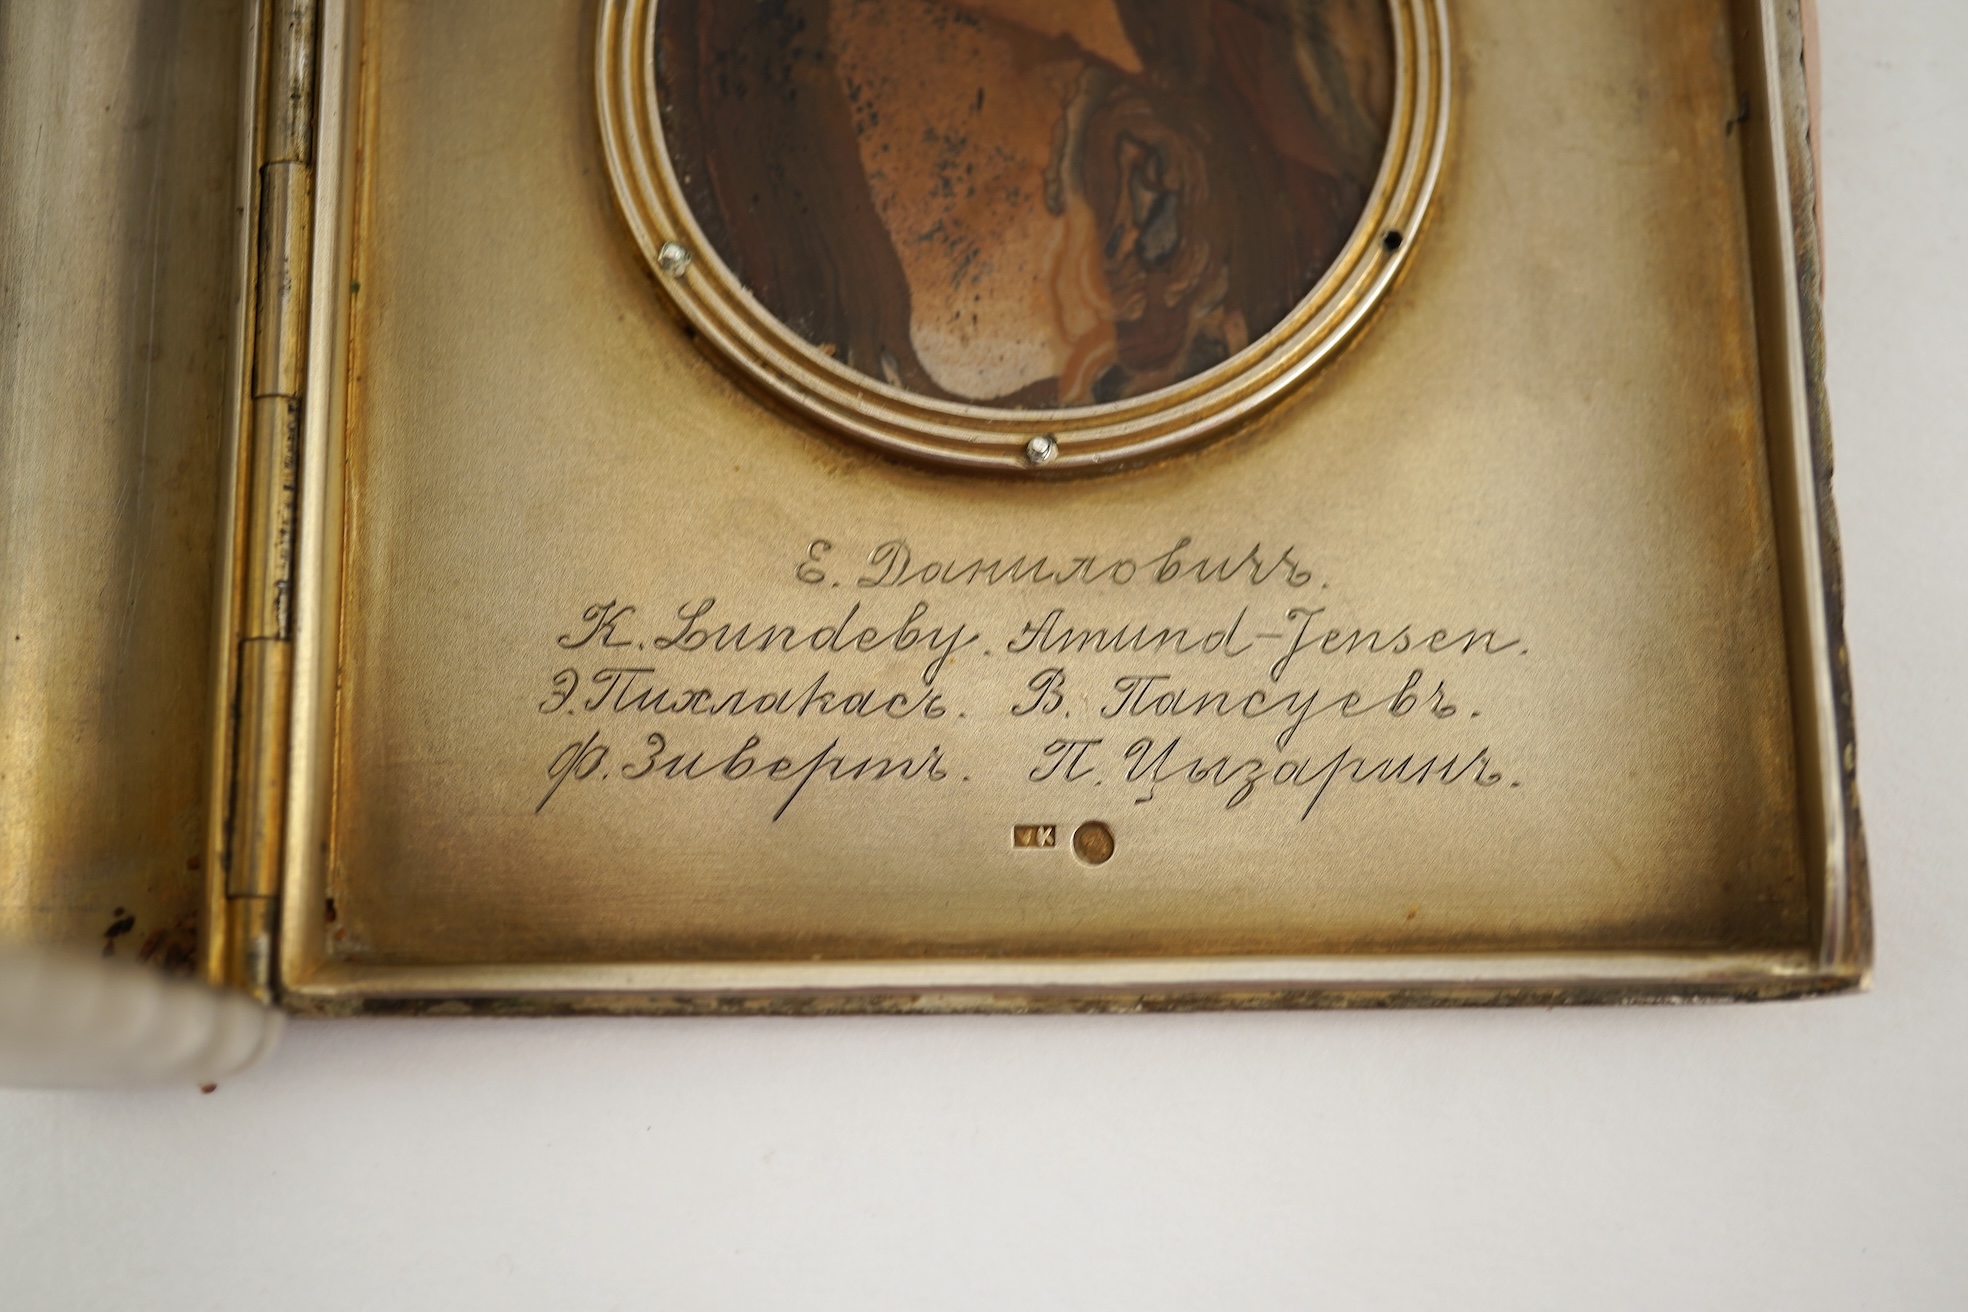 Е. Даниловичъ.
K. Lundeby. Amund-Jensen.
Э. Пихлакасъ. В. Папсуевъ.
Ф. Зивертъ. П. Цызаринъ.